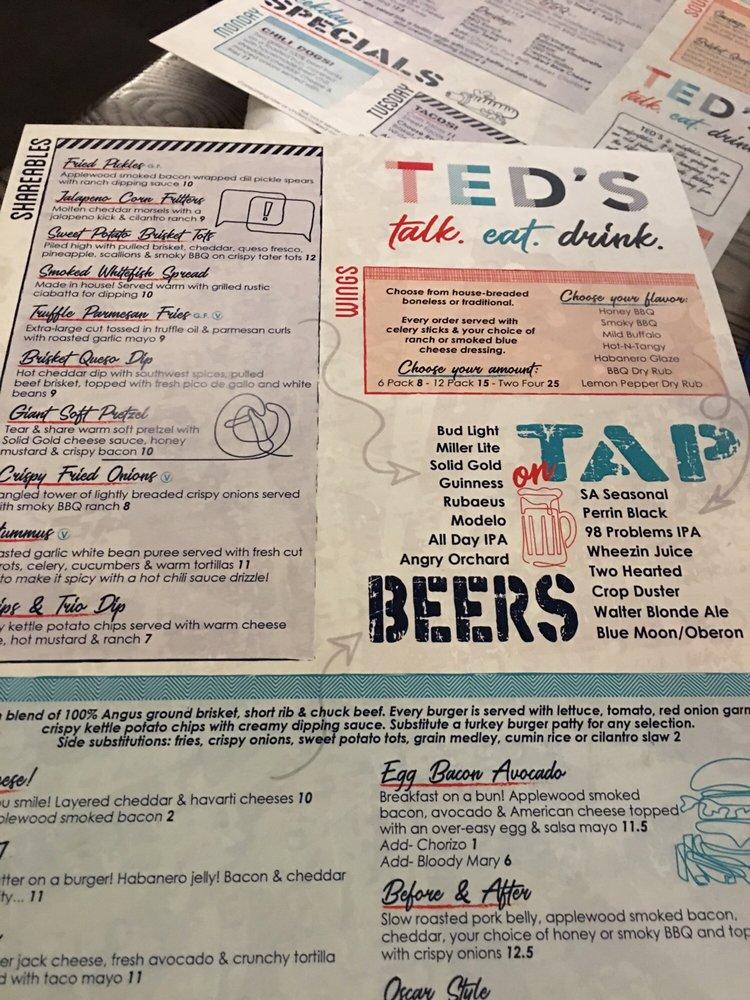 SPECIALS
MONDAY
CHILI DOGS!
TUESDAY
TACOS!
TED'
talk. eat. drink
SHAREABLES
Fried Pickles G.F.
Applewood smoked bacon wrapped dill pickle spears
with ranch dipping sauce 10
Jalapeno Corn Fritters
Molten cheddar morsels with a
jalapeno kick & cilantro ranch 9
Sweet Potato Brisket Tots
Piled high with pulled brisket, cheddar, queso fresco,
pineapple, scallions & smoky BBQ on crispy tater tots 12
Smoked Whitefish Spread
Made in house! Served warm with grilled rustic
ciabatta for dipping 10
Truffle Parmesan Fries G.F. V
Extra-large cut tossed in truffle oil & parmesan curls
with roasted garlic mayo 9
Brisket Queso Dip
Hot cheddar dip with southwest spices, pulled
beef brisket, topped with fresh pico de gallo and white
beans 9
Giant Soft Pretzel
Tear & share warm soft pretzel with
Solid Gold cheese sauce, honey
mustard & crispy bacon 10
Crispy Fried Onions V
angled tower of lightly breaded crispy onions served
th smoky BBQ ranch 8
ummus V
asted garlic white bean puree served with fresh cut
rots, celery, cucumbers & warm tortillas 11
to make it spicy with a hot chili sauce drizzle!
ips & Trio Dip
y kettle potato chips served with warm cheese
e, hot mustard & ranch 7
TED'S
talk. eat. drink.
WINGS
Choose from house-breaded
boneless or traditional.
Every order served with
celery sticks & your choice of
ranch or smoked blue
cheese dressing.
Choose your amount:
6 Pack 8 - 12 Pack 15 - Two Four 25
Choose your flavor:
Honey BBQ
Smoky BBQ
Mild Buffalo
Hot-N-Tangy
Habanero Glaze
BBQ Dry Rub
Lemon Pepper Dry Rub
on TAP
Bud Light
Miller Lite
Solid Gold
Guinness
Rubaeus
Modelo
All Day IPA
Angry Orchard
BEERS
SA Seasonal
Perrin Black
98 Problems IPA
Wheezin Juice
Two Hearted
Crop Duster
Walter Blonde Ale
Blue Moon/Oberon
blend of 100% Angus ground brisket, short rib & chuck beef. Every burger is served with lettuce, tomato, red onion garn
crispy kettle potato chips with creamy dipping sauce. Substitute a turkey burger patty for any selection.
Side substitutions: fries, crispy onions, sweet potato tots, grain medley, cumin rice or cilantro slaw 2
ese!
u smile! Layered cheddar & havarti cheeses 10
plewood smoked bacon 2
tter on a burger! Habanero jelly! Bacon & cheddar
ty... 11
er jack cheese, fresh avocado & crunchy tortilla
d with taco mayo 11
Egg Bacon Avocado
Breakfast on a bun! Applewood smoked
bacon, avocado & American cheese topped
with an over-easy egg & salsa mayo 11.5
Add- Chorizo 1
Add- Bloody Mary 6
Before & After
Slow roasted pork belly, applewood smoked bacon,
cheddar, your choice of honey or smoky BBQ and top
with crispy onions 12.5
Oscar Style